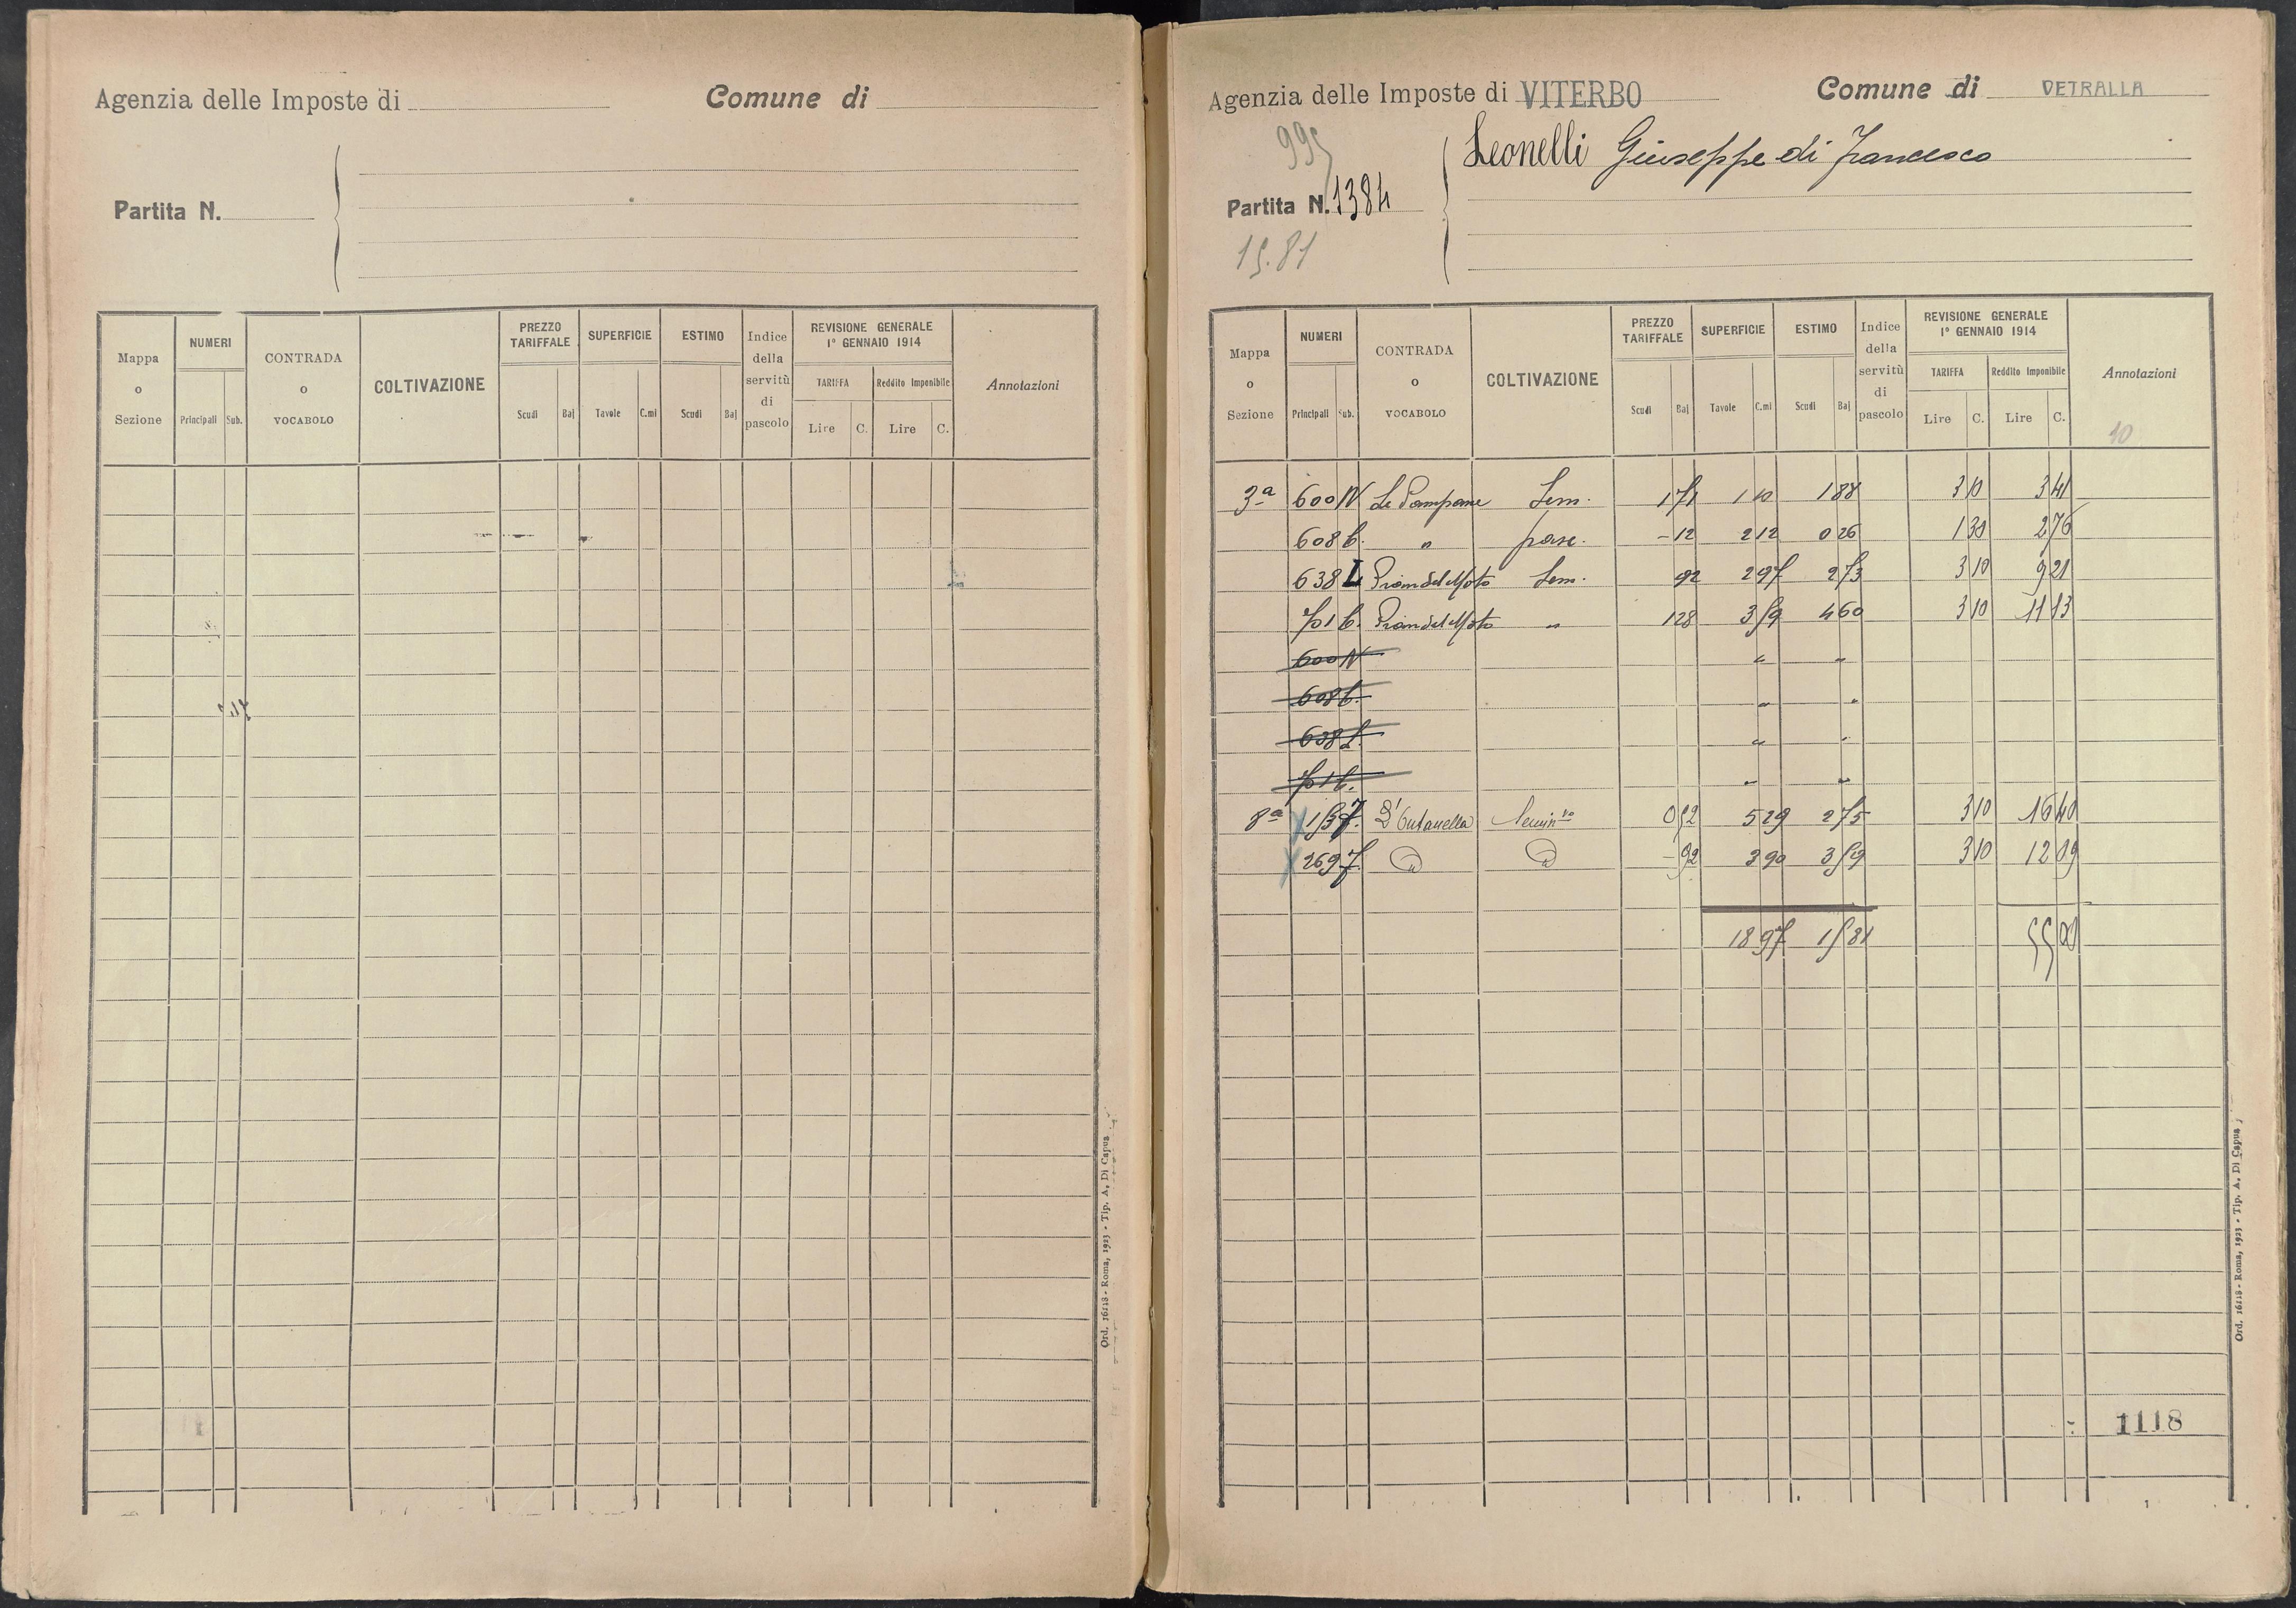 Agenzia delle Imposte di Comune di
Partita N.
Mappa o Sezione NUMERI CONTRADA o VOCABOLO COLTIVAZIONE PREZZO TARIFFALE SUPERFICIE ESTIMO Indice della servitù di pascolo REVISIONE GENERALE 1° GENNAIO 1914 Annotazioni
TARIFFA Reddito Imponibile
Principali Sub. Scudi Baj Tavole C.mi Scudi Baj Lire C. Lire C.
Ord. 16118 - Roma, 1923 - Tip. A. Di Capua
Agenzia delle Imposte di VITERBO Comune di VETRALLA
995
Leonelli Giuseppe di Francesco
Partita N. 1384
15.81
Mappa o Sezione NUMERI CONTRADA o VOCABOLO COLTIVAZIONE PREZZO TARIFFALE SUPERFICIE ESTIMO Indice della servitù di pascolo REVISIONE GENERALE 1° GENNAIO 1914 Annotazioni
TARIFFA Reddito Imponibile
Principali Sub. Scudi Baj Tavole C.mi Scudi Baj Lire C. Lire C.
10
3a 600 N Le Pampane Sem. 1 71 1 10 1 88 3 10 3 41
608 b. " pasc. - 12 2 12 0 26 1 30 2 76
638 L Sem. 92 2 97 2 73 3 10 9 21
701 b. " 1 28 3 59 4 60 3 10 11 13
600 N " "
608 b. " "
638 L. " "
701 b. " "
8a 157. Semin vo 0 52 5 29 2 75 3 10 16 40
269 - 92 3 90 3 59 3 10 12 09
18 97 15 81 55 00
1118
Ord. 16118 - Roma, 1923 - Tip. A. Di Capua